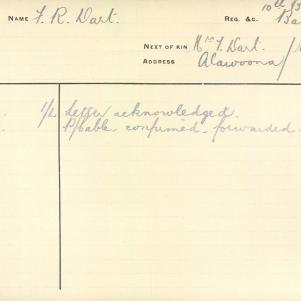 NAME F. R. Dart. REG. &C. 10th B
NEXT OF KIN Mrs F. Dart.
ADDRESS Alawoona
1/2 Letter acknowledged.
P/cable confirmed. forwarded